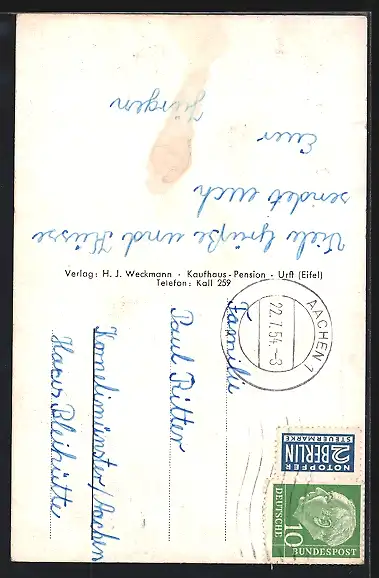 Viele Grüße und Küsse
sendet euch
Euer
Jürgen
Verlag: H. J. Weckmann - Kaufhaus-Pension - Urft (Eifel)
Telefon: Kall 259
AACHEN 1
22.7.54.-8
Familie
Paul Ritter
Kornelimünster/Aachen
Haus Bleihütte
NOTOPFER
2 BERLIN
STEUERMARKE
DEUTSCHE
BUNDESPOST
10